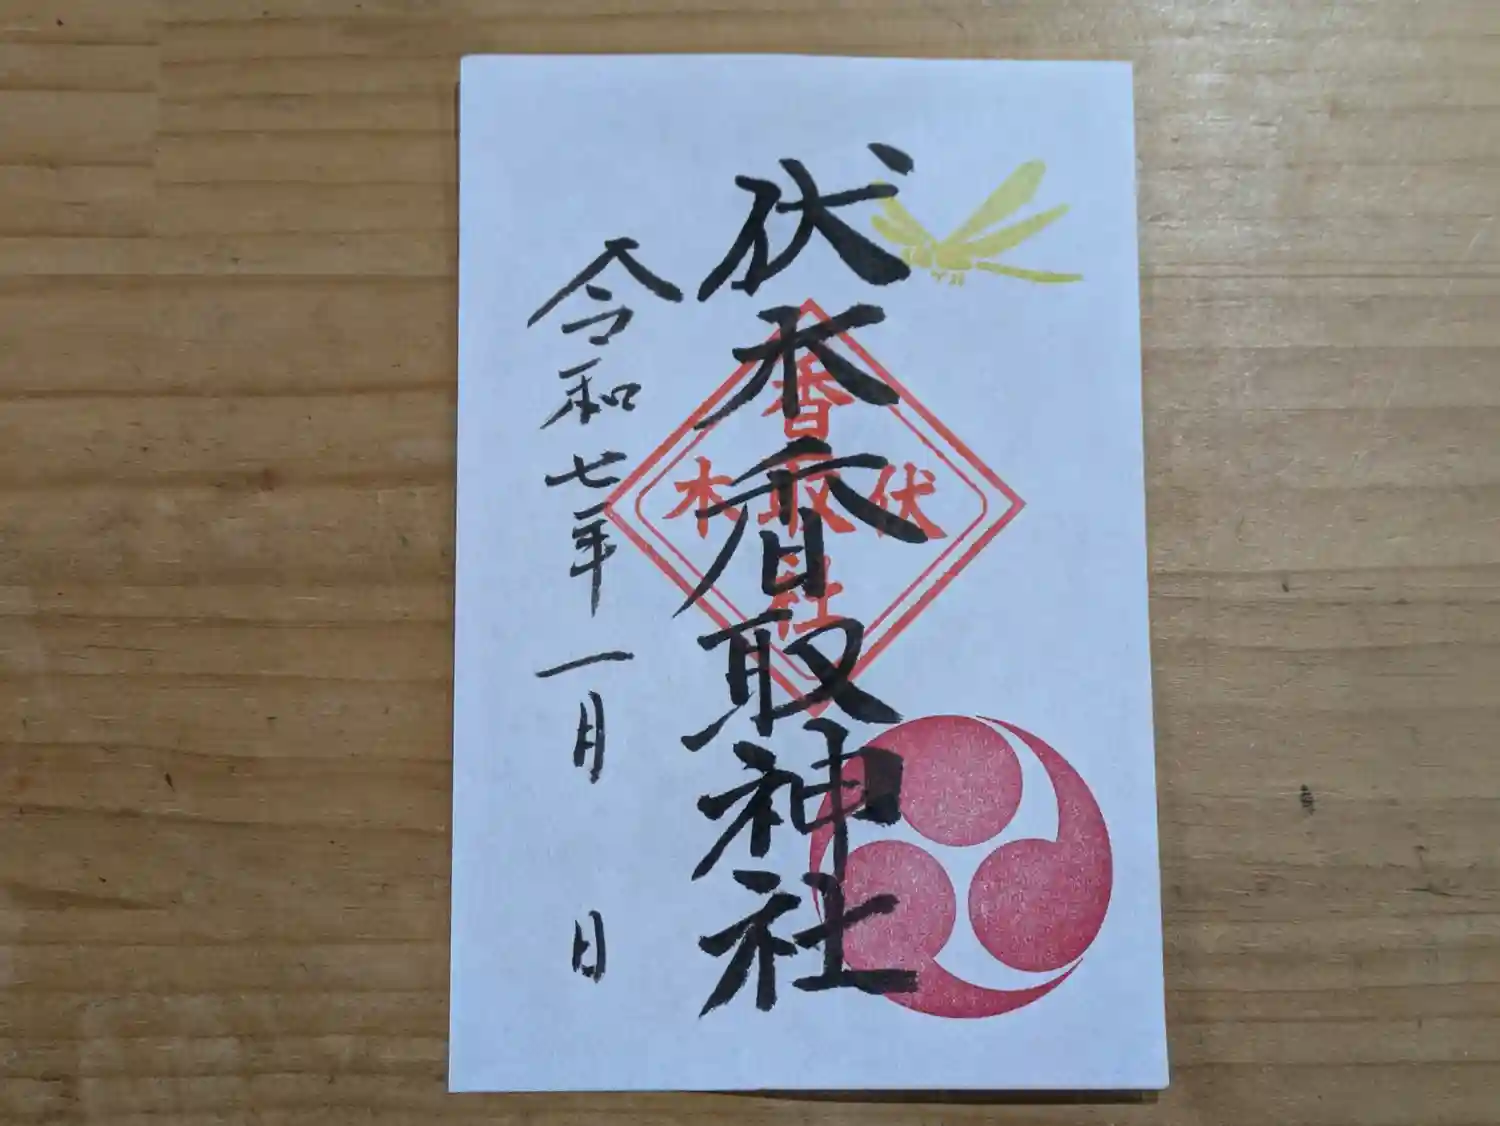 伏木香取神社
香
伏取木
社
令和七年一月 日